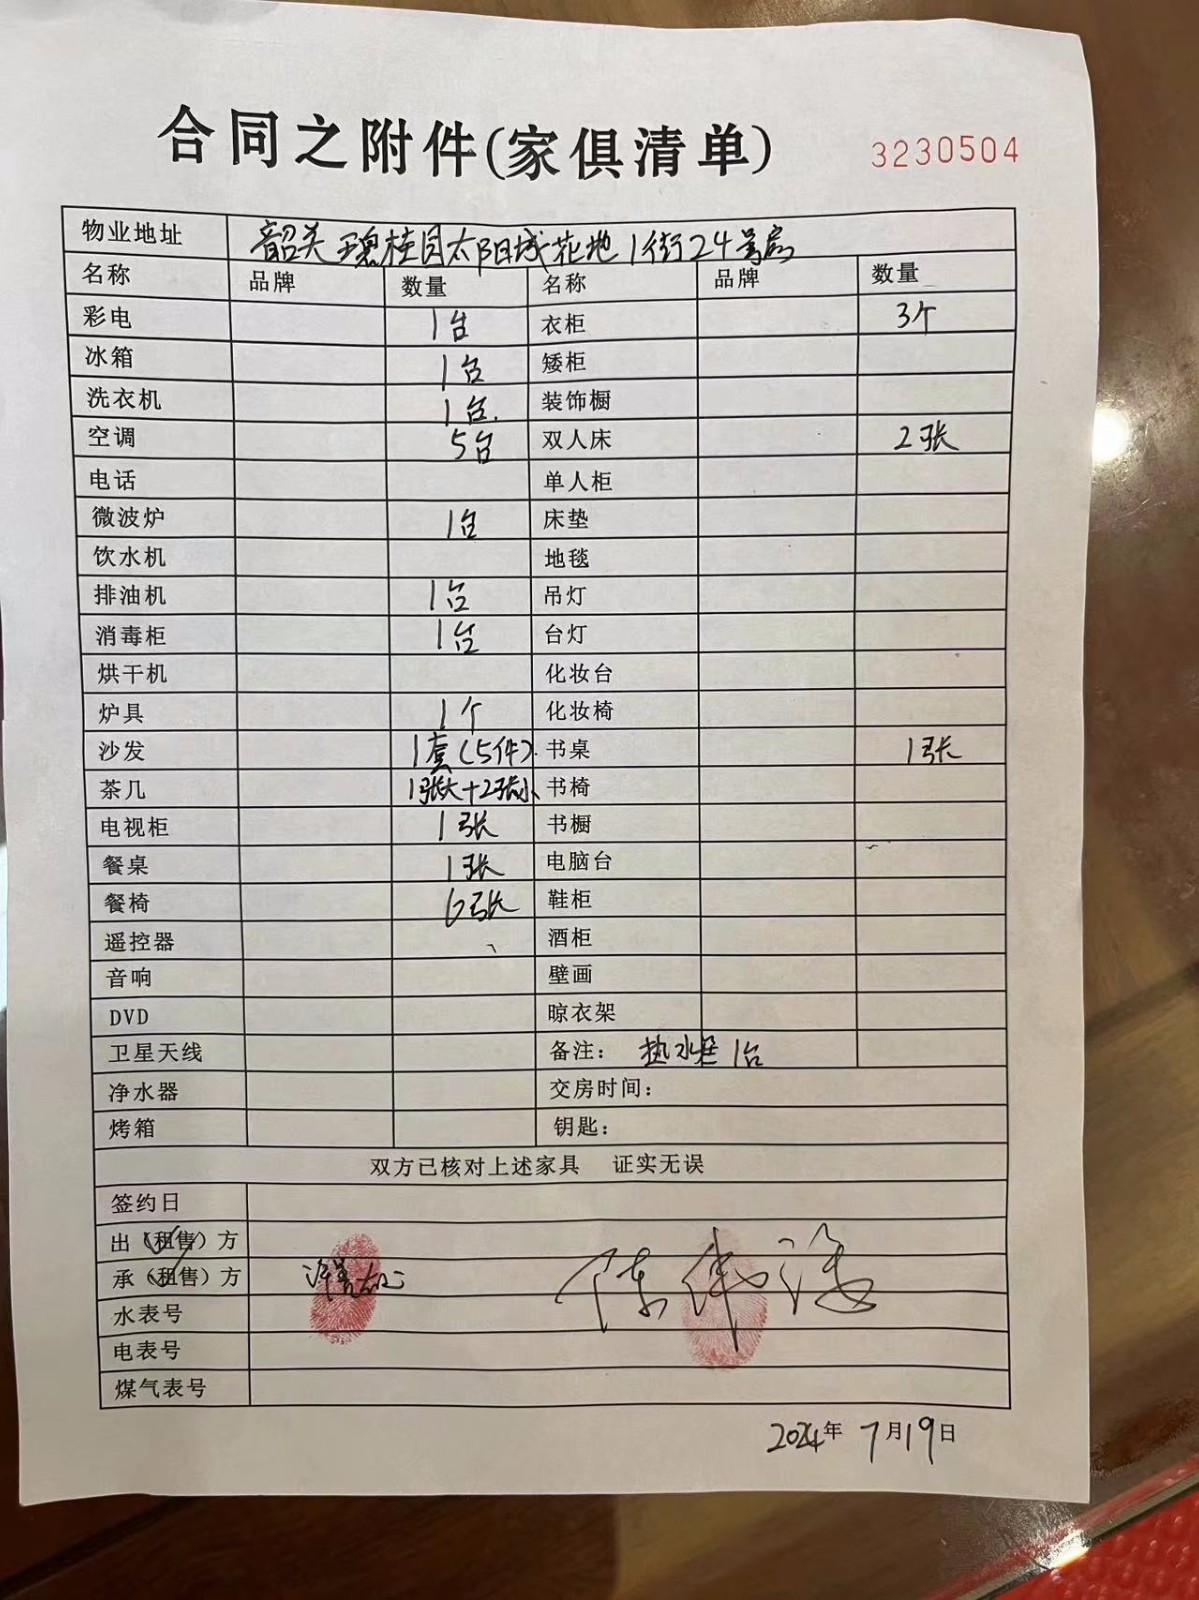 合同之附件(家俱清单) 3230504
物业地址 韶关碧桂园太阳城花地1街24号房
名称 品牌 数量 名称 品牌 数量
彩电 1台 衣柜 3个
冰箱 1台 矮柜
洗衣机 1台. 装饰橱
空调 5台 双人床 2张
电话 单人柜
微波炉 1台 床垫
饮水机 地毯
排油机 1台 吊灯
消毒柜 1台 台灯
烘干机 化妆台
炉具 1个 化妆椅
沙发 1套(5件). 书桌 1张
茶几 1张大+2张小 书椅
电视柜 1张 书橱
餐桌 1张 电脑台
餐椅 6张 鞋柜
遥控器 酒柜
音响 壁画
DVD 晾衣架
卫星天线 备注： 热水器 1台
净水器 交房时间：
烤箱 钥匙：
双方已核对上述家具 证实无误
签约日
出（租售）方
承（租售）方
水表号
电表号
煤气表号
2024年 7月19日